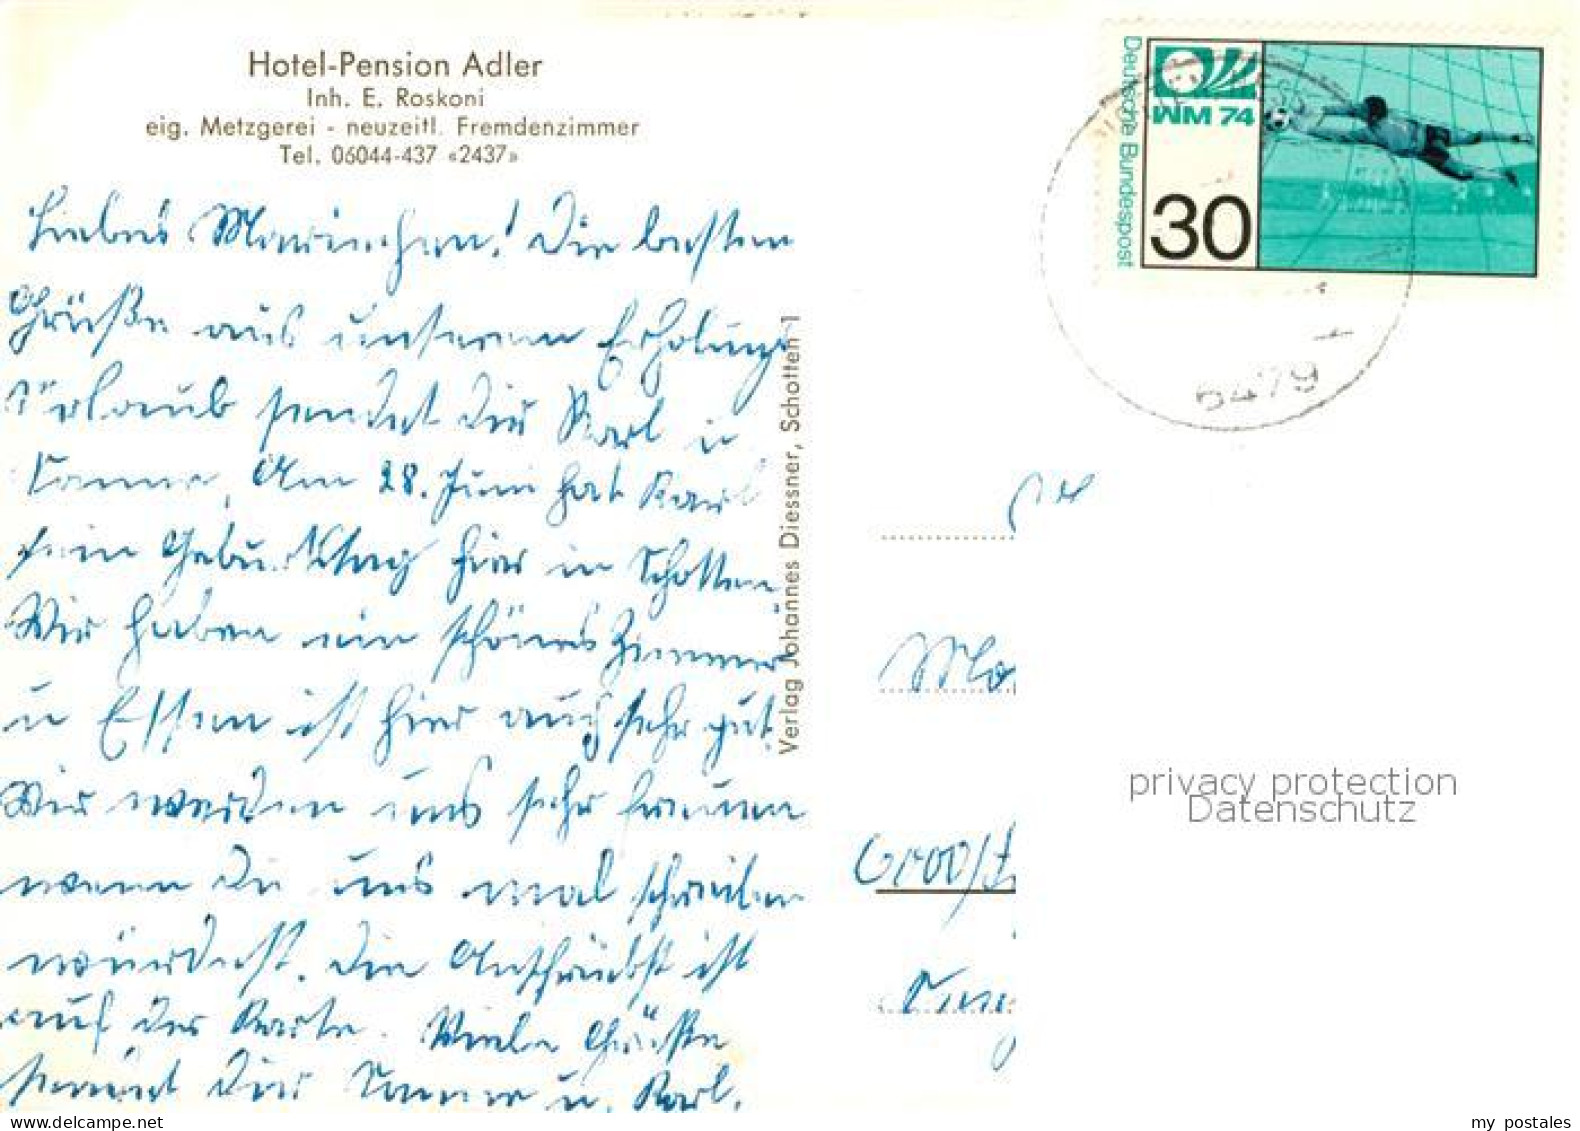 Hotel-Pension Adler
Inh. E. Roskoni
eig. Metzgerei - neuzeitl. Fremdenzimmer
Tel. 06044-437 «2437»
Liebes Mariechen! Die besten
Grüße aus unserem Erholungs
Urlaub sendet Dir Karl u
Sanne. Am 28. Juni hat Karl
sein Geburtstag hier in Schotten.
Wir haben ein schönes Zimmer
u Essen ist hier auch sehr gut.
Wir werden uns sehr freuen
wenn Du uns mal schreiben
würdest. Die Anschrift ist
auf der Karte. Viele Grüße
sendet Dir Sanne u. Karl.
Verlag Johannes Diessner, Schotten 1
Deutsche Bundespost
WM 74
30
6479
privacy protection
Datenschutz
www.delcampe.net
my_postales